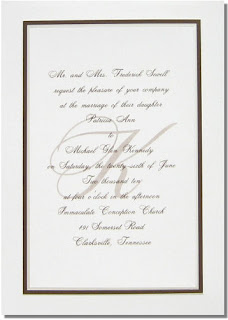 Mr. and Mrs. Frederick Sewell
request the pleasure of your company
at the marriage of their daughter
Patricia Ann
to
Michael Glen Kennedy
on Saturday, the twenty-sixth of June
Two thousand ten
at four o'clock in the afternoon
Immaculate Conception Church
191 Somersat Road
Clarksville, Tennessee
K